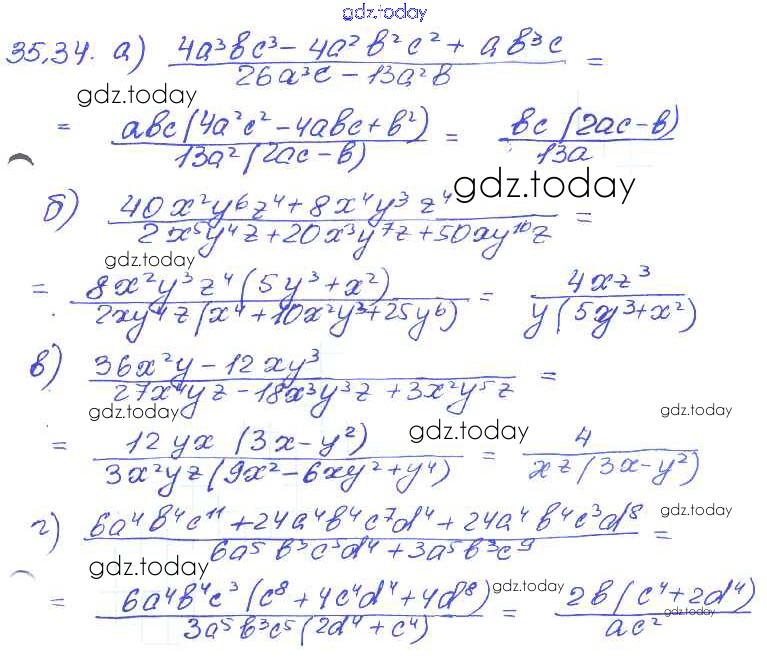 gdz.today
35,34. а) (4a³bc³ - 4a²b²c² + ab³c) / (26a³c - 13a²b) =
gdz.today
= abc(4a²c² - 4abc + b²) / 13a²(2ac - b) = bc(2ac - b) / 13a
gdz.today
б) (40x²y⁶z⁴ + 8x⁴y³z⁴) / (2x⁵y⁴z + 20x³y⁷z + 50xy¹⁰z) =
gdz.today
= 8x²y³z⁴(5y³ + x²) / 2xy⁴z(x⁴ + 10x²y³ + 25y⁶) = 4xz³ / y(5y³ + x²)
в) (36x²y - 12xy³) / (27x⁴yz - 18x³y³z + 3x²y⁵z) =
gdz.today gdz.today gdz.today
= 12yx(3x - y²) / 3x²yz(9x² - 6xy² + y⁴) = 4 / xz(3x - y²)
г) (6a⁴b⁴c¹¹ + 24a⁴b⁴c⁷d⁴ + 24a⁴b⁴c³d⁸) / (6a⁵b³c⁵d⁴ + 3a⁵b³c⁹) =
gdz.today
gdz.today
= 6a⁴b⁴c³(c⁸ + 4c⁴d⁴ + 4d⁸) / 3a⁵b³c⁵(2d⁴ + c⁴) = 2b(c⁴ + 2d⁴) / ac²
gdz.today gdz.today